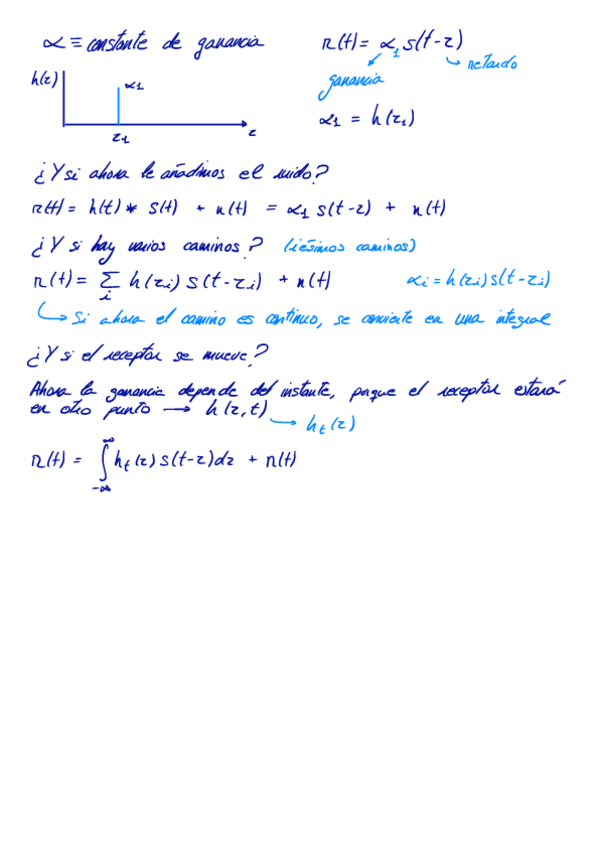 α ≡ constante de ganancia
r(t) = α₁ s(t-τ)
ganancia
retardo
α₁ = h(τ₁)
h(τ)
α1
τ1
τ
¿Y si ahora le añadimos el ruido?
r(t) = h(t) * s(t) + n(t) = α₁ s(t-τ) + n(t)
¿Y si hay varios caminos? (iésimos caminos)
r(t) = ∑ᵢ h(τᵢ) s(t-τᵢ) + n(t)
αᵢ = h(τᵢ) s(t-τᵢ)
↳ Si ahora el camino es continuo, se convierte en una integral
¿Y si el receptor se mueve?
Ahora la ganancia depende del instante, porque el receptor estará
en otro punto → h(τ,t)
→ hₜ(τ)
r(t) = ∫_{-∞}^{∞} hₜ(τ) s(t-τ)dτ + n(t)